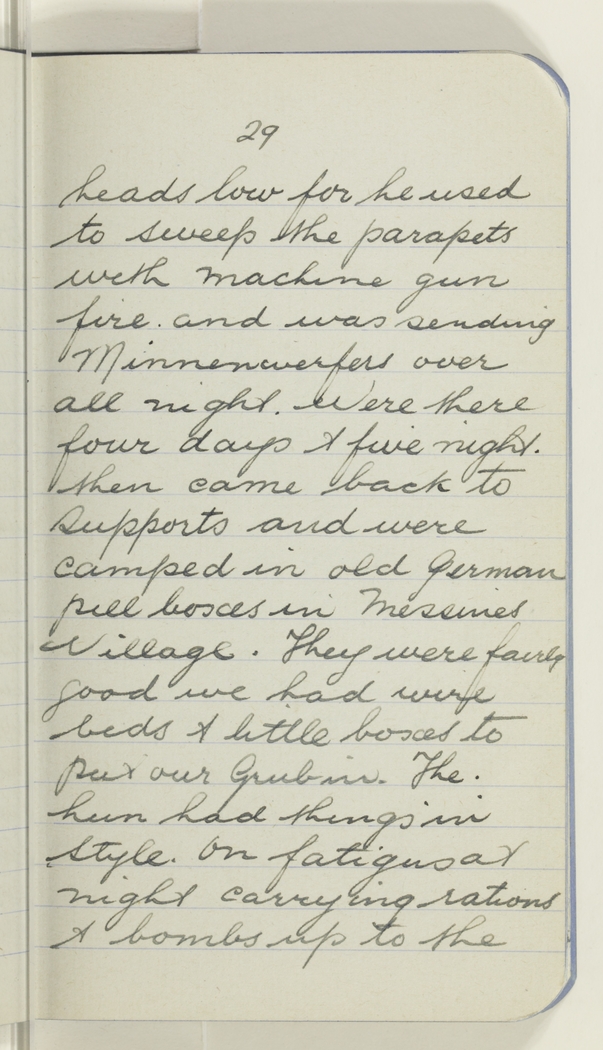 29
heads low for he used
to sweep the parapets
with machine gun
fire. and was sending
Minnenwerfers over
all night. Were there
four days & five night.
then came back to
supports and were
camped in old German
pill boxes in Messines
Village. They were fairly
good we had wire
beds & little boxes to
put our Grub in. The.
hun had things in
style. On fatigus at
night carrying rations
& bombs up to the